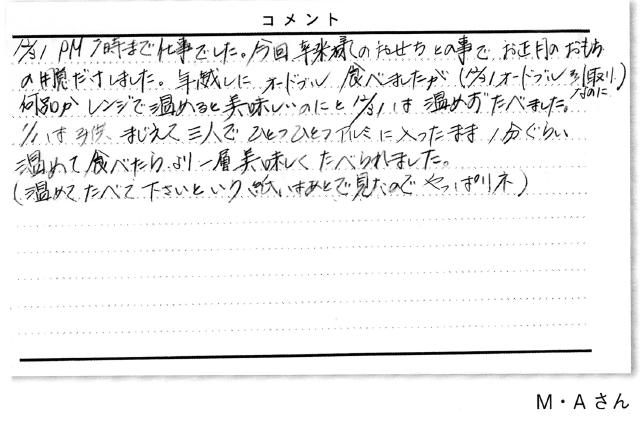 コメント
12/31 PM 7時まで仕事でした。今回 様のおせちとの事で お正月のおもち
の用意だけしました。年越しに オードブル 食べましたが (12/31オードブル引取り
なのに)
何品か レンジで温めると美味しいのにと 12/31は 温めずたべました。
1/1は 子供 まじえて 三人で ひとつひとつアルミに入ったまま 1分ぐらい
温めて 食べたら より一層美味しく たべられました。
(温めて たべて 下さいという 紙いはあとで見たので やっぱりネ)
M・Aさん